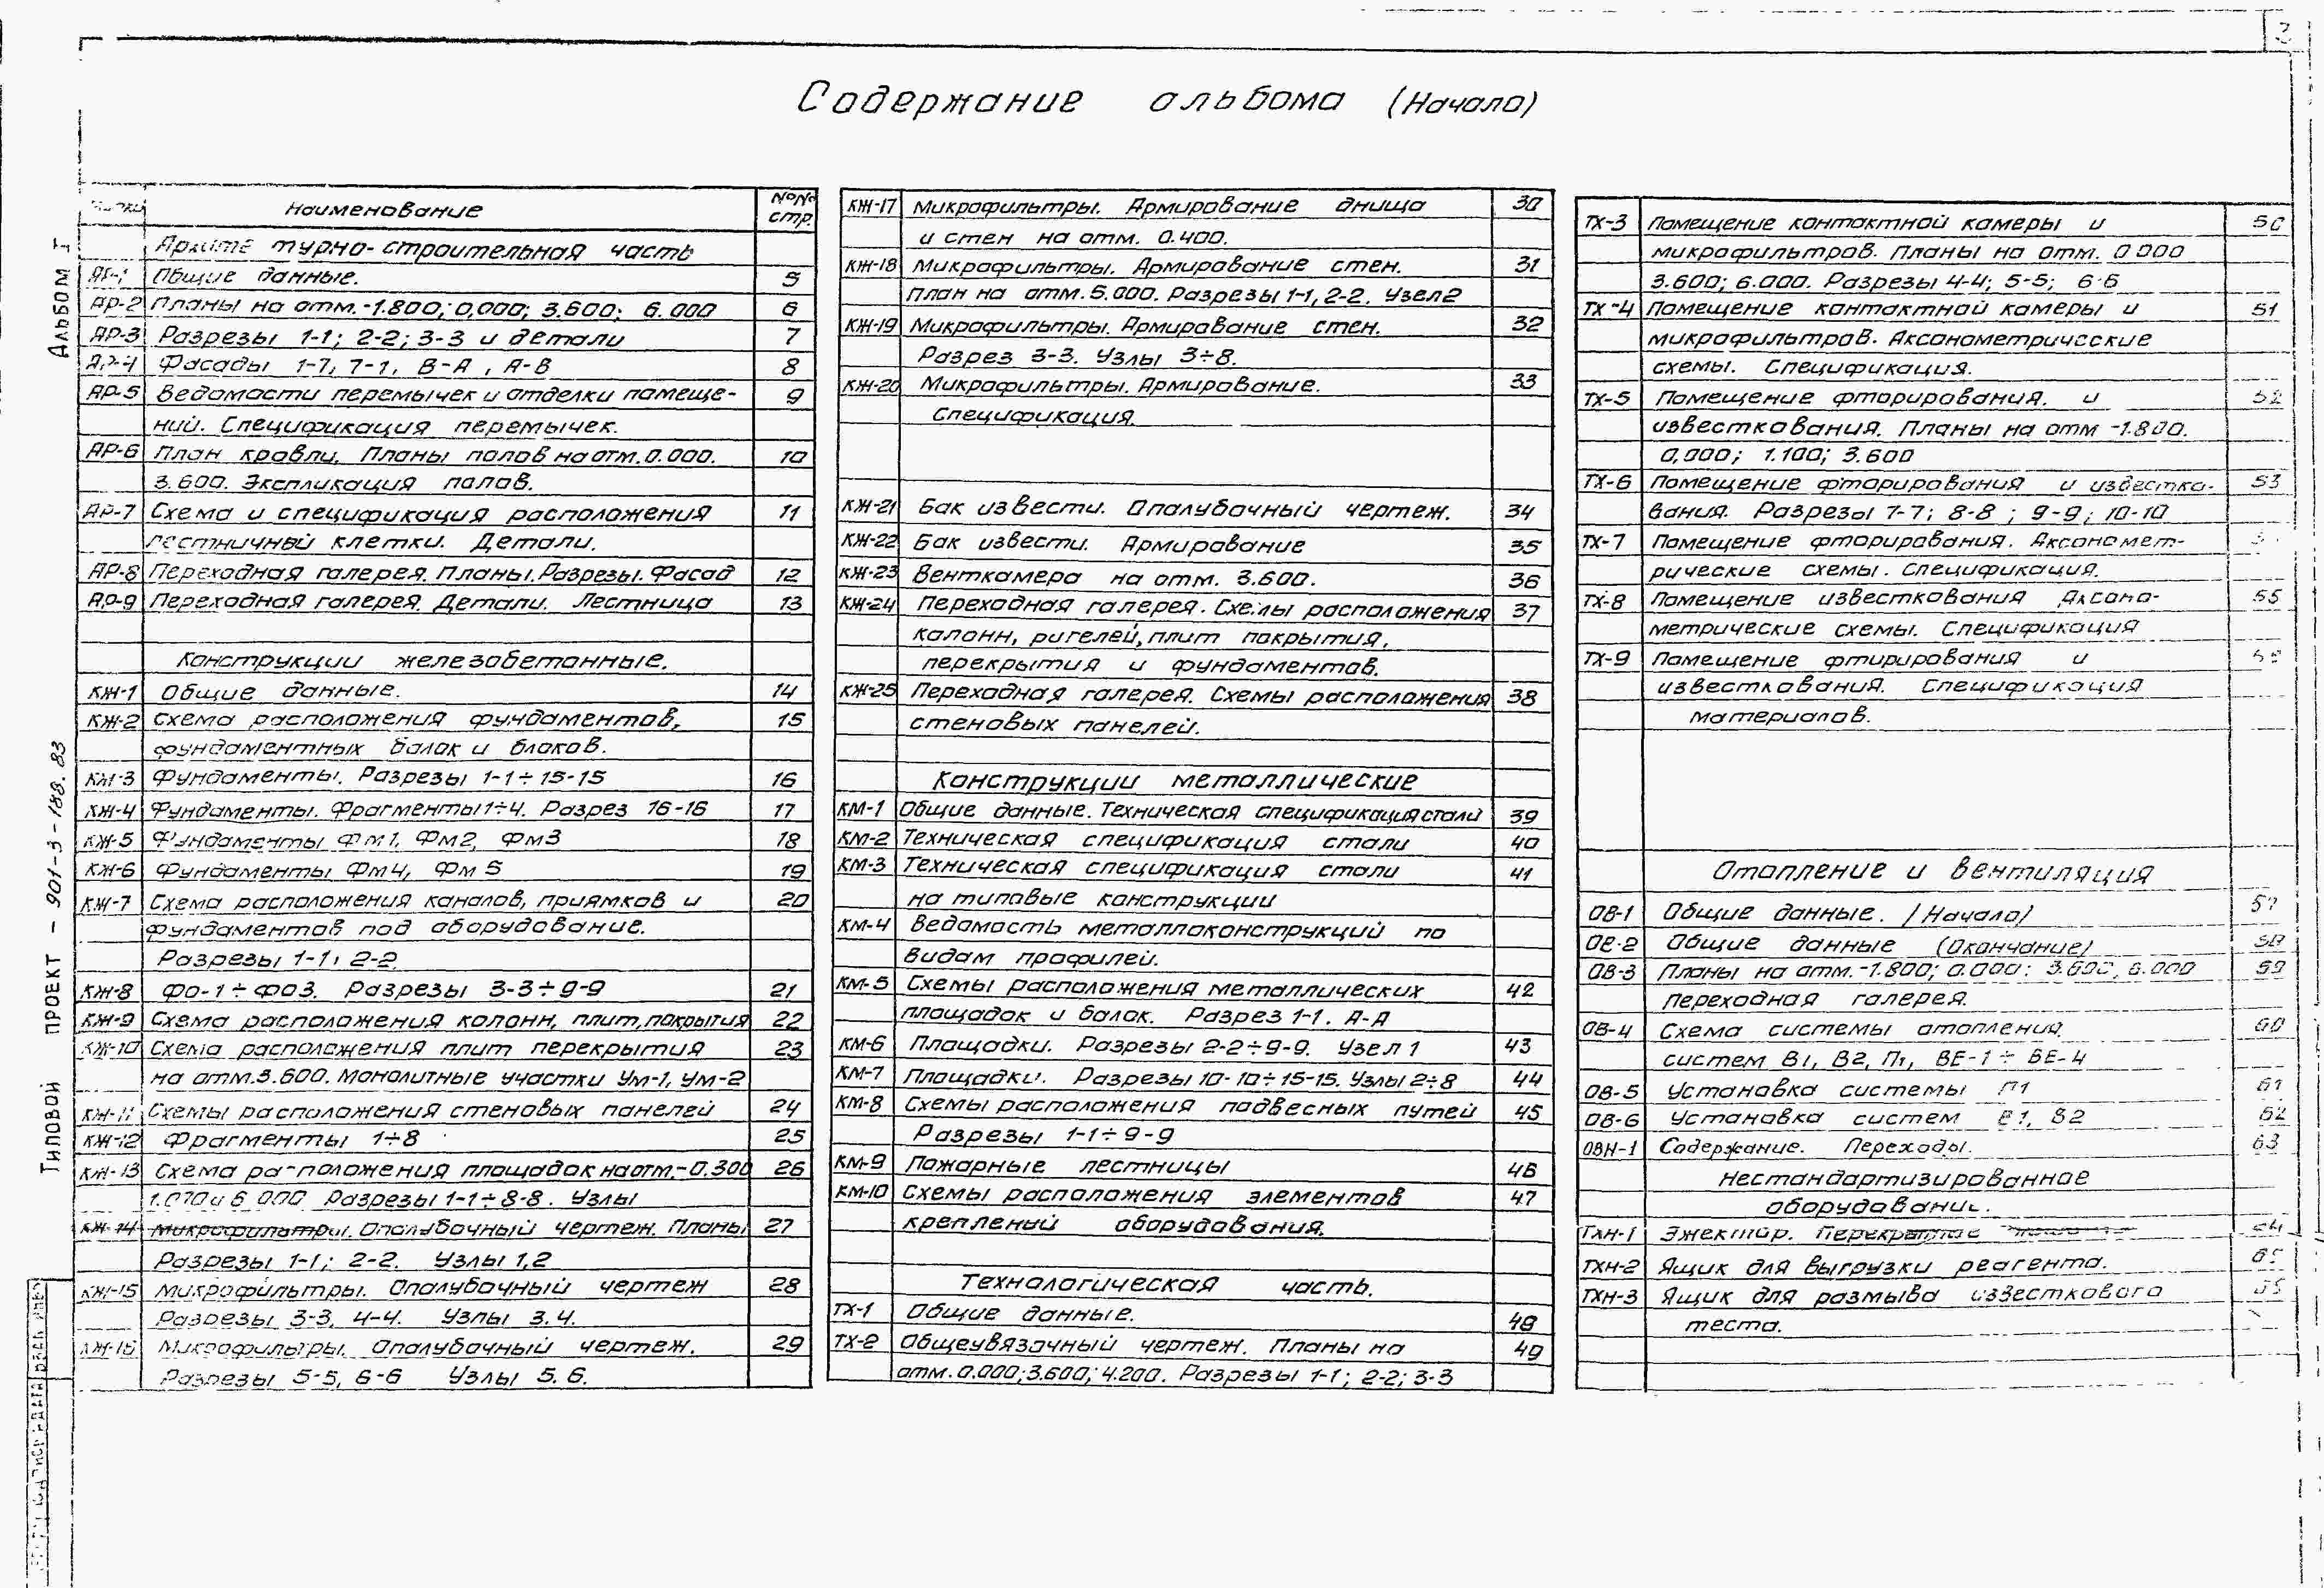 Содержание альбома (Начало)
Альбом I
Типовой проект - 901-3-188.83
Наименование №№ стр.
турно-строительная часть
АР-1 Общие данные. 5
АР-2 Планы на отм.-1.800; 0,000; 3.600; 6.000 6
АР-3 Разрезы 1-1; 2-2; 3-3 и детали 7
АР-4 Фасады 1-7, 7-1, В-А, А-В 8
АР-5 Ведомости перемычек и отделки помеще- 9
ний. Спецификация перемычек.
АР-6 План кровли. Планы полов на отм. 0.000. 10
3.600. Экспликация полов.
АР-7 Схема и спецификация расположения 11
лестничной клетки. Детали.
АР-8 Переходная галерея. Планы. Разрезы. Фасад 12
АР-9 Переходная галерея. Детали. Лестница 13
Конструкции железобетонные.
КЖ-1 Общие данные. 14
КЖ-2 Схема расположения фундаментов, 15
фундаментных балок и блоков.
КЖ-3 Фундаменты. Разрезы 1-1÷15-15 16
КЖ-4 Фундаменты. Фрагменты 1÷4. Разрез 16-16 17
КЖ-5 Фундаменты Фм1, Фм2, Фм3 18
КЖ-6 Фундаменты Фм4, Фм5 19
КЖ-7 Схема расположения каналов, приямков и 20
фундаментов под оборудование.
Разрезы 1-1, 2-2.
КЖ-8 Фо-1÷Фо3. Разрезы 3-3÷9-9 21
КЖ-9 Схема расположения колонн, плит, покрытия 22
КЖ-10 Схема расположения плит перекрытия 23
на отм.3.600. Монолитные участки Ум-1, Ум-2
КЖ-11 Схемы расположения стеновых панелей 24
КЖ-12 Фрагменты 1÷8 25
КЖ-13 Схема расположения площадок на отм.-0.300 26
6.000 Разрезы 1-1÷8-8. Узлы
КЖ-14 Микрофильтры. Опалубочный чертеж. Планы 27
Разрезы 1-1; 2-2. Узлы 1,2
КЖ-15 Микрофильтры. Опалубочный чертеж 28
Разрезы 3-3, 4-4. Узлы 3,4.
КЖ-16 Микрофильтры. Опалубочный чертеж. 29
Разрезы 5-5, 6-6 Узлы 5,6.
КЖ-17 Микрофильтры. Армирование днища 30
и стен на отм. 0.400.
КЖ-18 Микрофильтры. Армирование стен. 31
План на отм. 5.000. Разрезы 1-1, 2-2. Узел 2
КЖ-19 Микрофильтры. Армирование стен. 32
Разрез 3-3. Узлы 3÷8.
КЖ-20 Микрофильтры. Армирование. 33
Спецификация.
КЖ-21 Бак извести. Опалубочный чертеж. 34
КЖ-22 Бак извести. Армирование 35
КЖ-23 Венткамера на отм. 3.600. 36
КЖ-24 Переходная галерея. Схемы расположения 37
колонн, ригелей, плит покрытия,
перекрытия и фундаментов.
КЖ-25 Переходная галерея. Схемы расположения 38
стеновых панелей.
Конструкции металлические
КМ-1 Общие данные. Техническая спецификация стали 39
КМ-2 Техническая спецификация стали 40
КМ-3 Техническая спецификация стали 41
на типовые конструкции
КМ-4 Ведомость металлоконструкций по
видам профилей.
КМ-5 Схемы расположения металлических 42
площадок и балок. Разрез 1-1. А-А
КМ-6 Площадки. Разрезы 2-2÷9-9. Узел 1 43
КМ-7 Площадки. Разрезы 10-10÷15-15. Узлы 2÷8 44
КМ-8 Схемы расположения подвесных путей 45
Разрезы 1-1÷9-9
КМ-9 Пожарные лестницы 46
КМ-10 Схемы расположения элементов 47
креплений оборудования.
Технологическая часть.
ТХ-1 Общие данные. 48
ТХ-2 Общеувязочный чертеж. Планы на 49
отм. 0.000; 3.600; 4.200. Разрезы 1-1; 2-2; 3-3
ТХ-3 Помещение контактной камеры и 50
микрофильтров. Планы на отм. 0.000
3.600; 6.000. Разрезы 4-4; 5-5; 6-6
ТХ-4 Помещение контактной камеры и 51
микрофильтров. Аксонометрические
схемы. Спецификация.
ТХ-5 Помещение фторирования. и 52
известкования. Планы на отм -1.800.
0,000; 1.100; 3.600
ТХ-6 Помещение фторирования и известко- 53
вания. Разрезы 7-7; 8-8; 9-9; 10-10
ТХ-7 Помещение фторирования. Аксономет-
рические схемы. Спецификация.
ТХ-8 Помещение известкования Аксоно- 55
метрические схемы. Спецификация
ТХ-9 Помещение фтирирования и
известкования. Спецификация
материалов.
Отопление и вентиляция
ОВ-1 Общие данные. (Начало) 57
ОВ-2 Общие данные (Окончание) 58
ОВ-3 Планы на отм.-1.800; 0.000; 3.600, 6.000 59
переходная галерея.
ОВ-4 Схема системы отопления, 60
систем В1, В2, П1, ВЕ-1÷ВЕ-4
ОВ-5 Установка системы П1 61
ОВ-6 Установка систем В1, В2 62
ОВН-1 Содержание. Переходы. 63
Нестандартизированное
оборудование.
ТХН-1 Эжектор. 64
ТХН-2 Ящик для выгрузки реагента. 65
ТХН-3 Ящик для размыва известкового
теста.